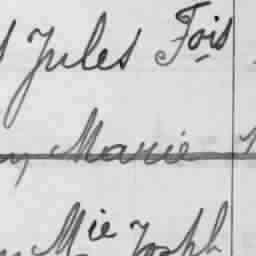 Jules Fois
Marie
Mie Josph